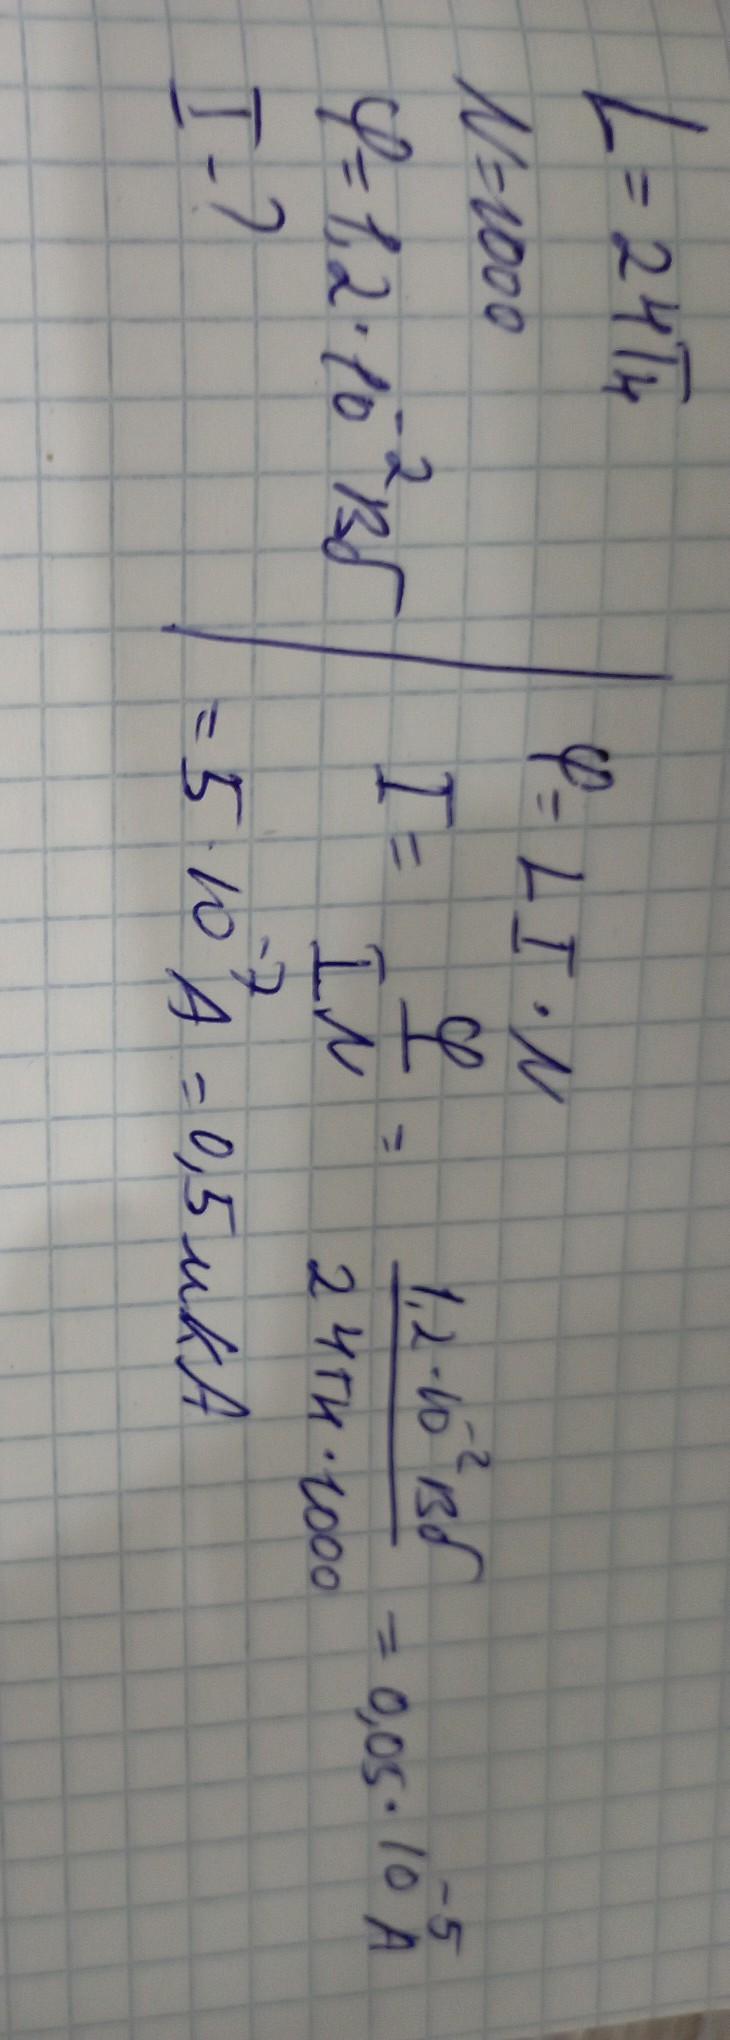 L = 24 Гн
N = 1000
φ = 1,2 · 10⁻² Вб
I - ?
φ = L I · N
I = φ / IN = 1,2 · 10⁻² Вб / 24 Гн · 1000 = 0,05 · 10⁻⁵ А
= 5 · 10⁻⁷ А = 0,5 мкА